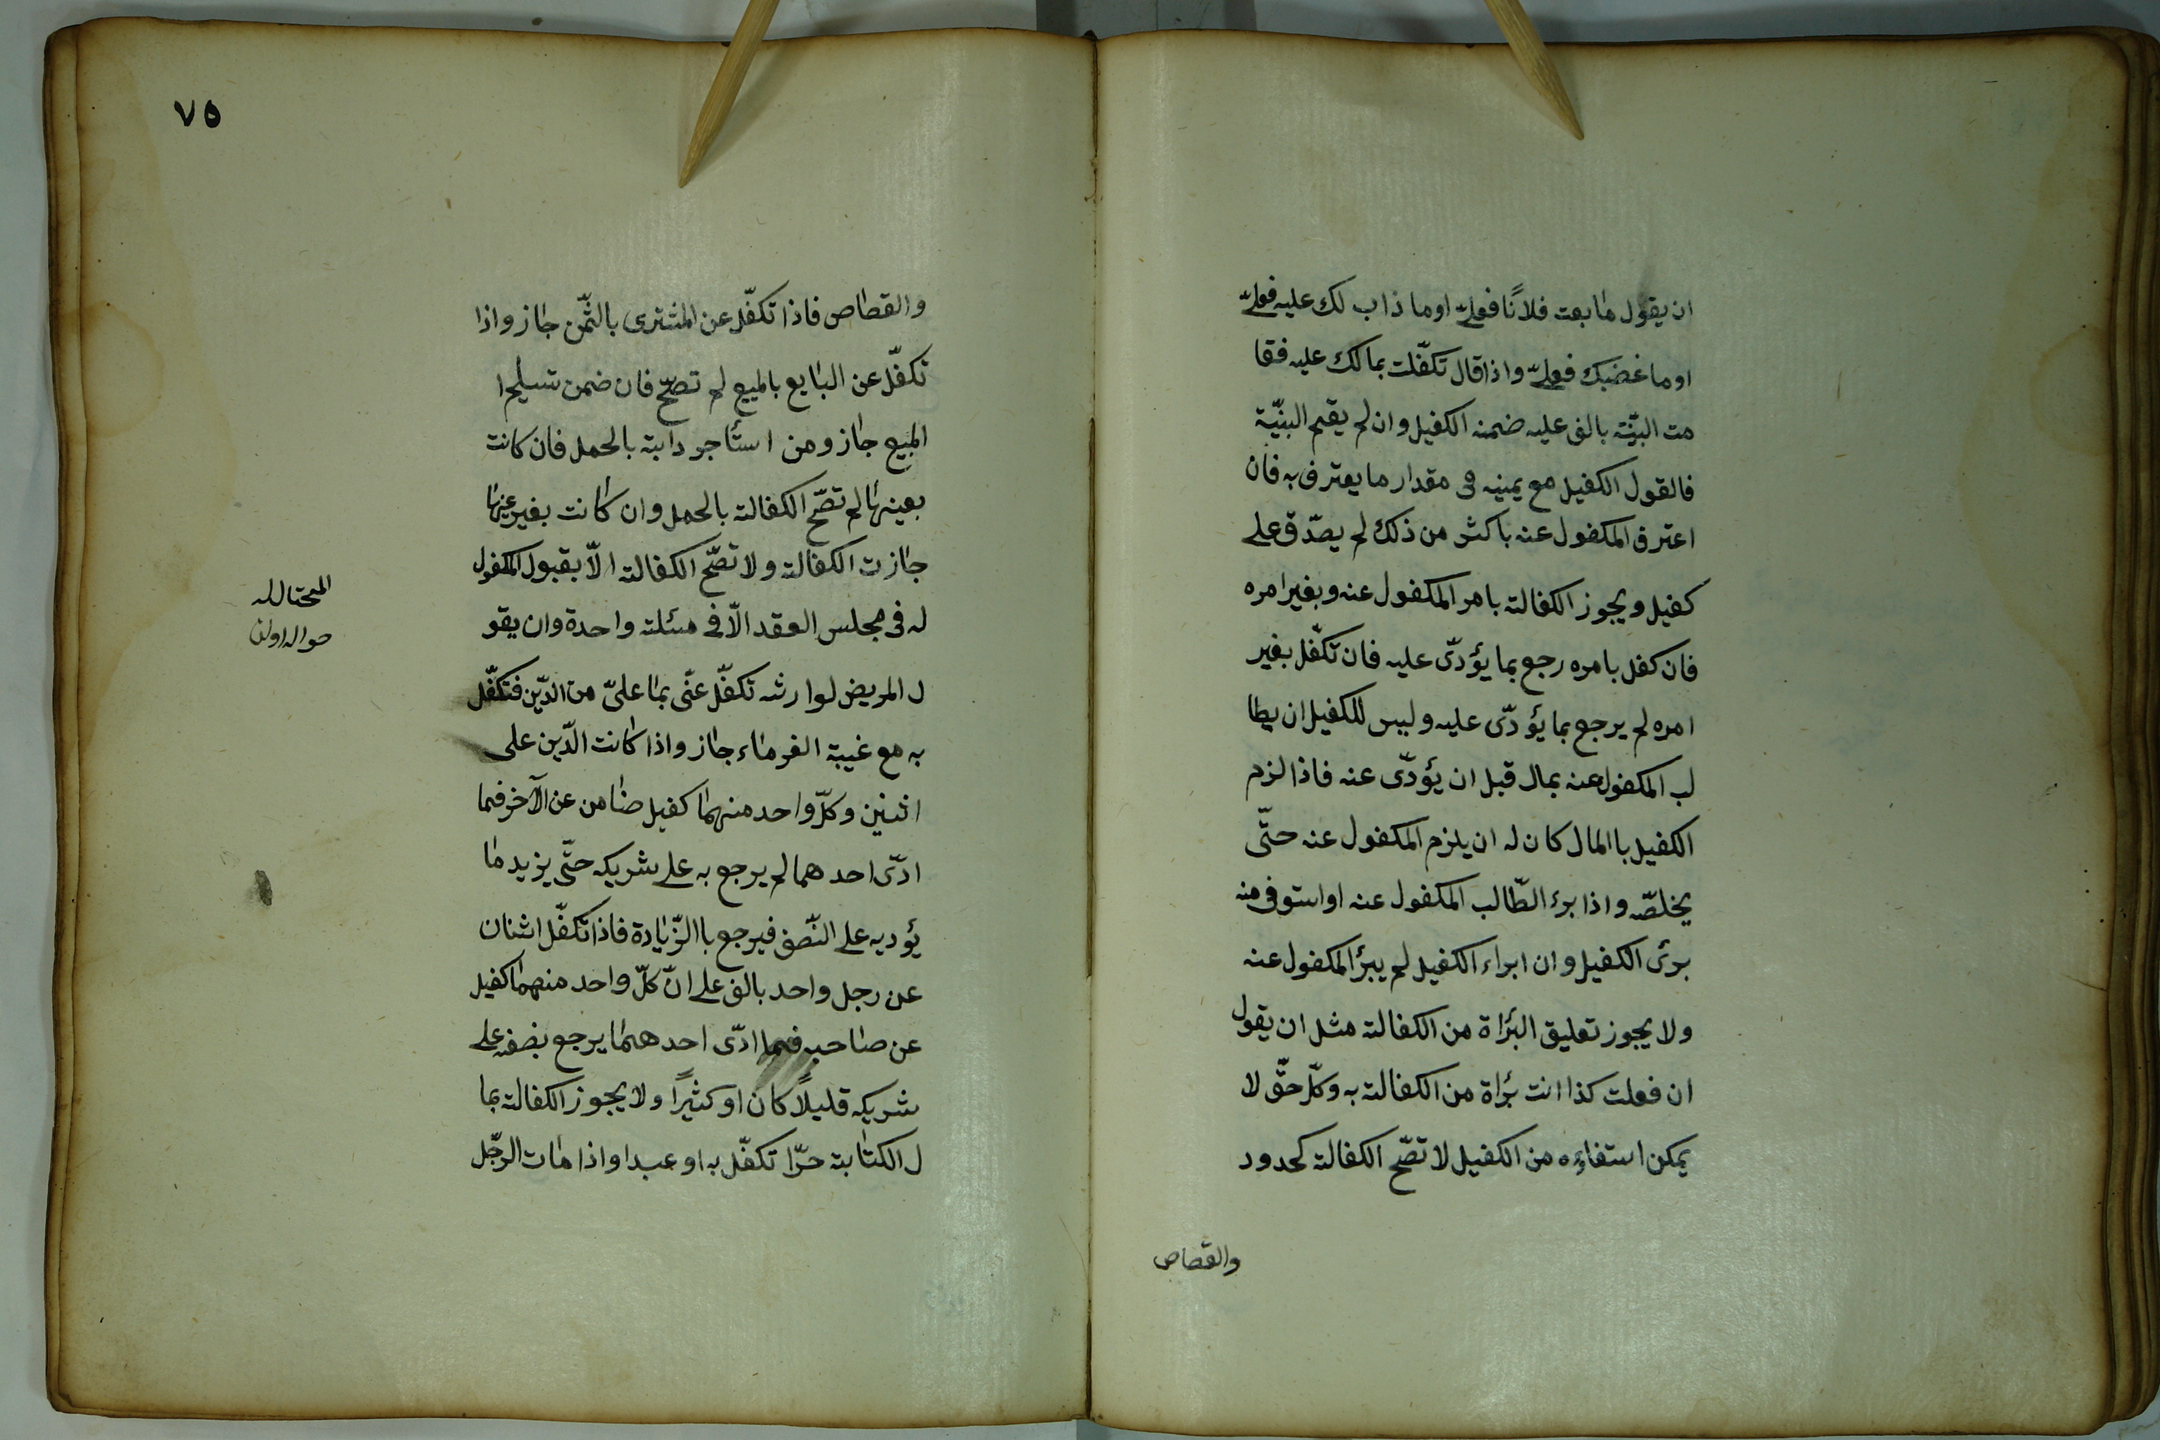 ان يقول مٰا بعت فلانًا فعليّ او ما ذاب لك عليه فعليّ
او ما غضبك فعليّ واذا قال تكفّلت بما لك عليه فقا
مت البيّنة بالف عليه ضمنه الكفيل وان لم يقم البنيّة
فالقول الكفيل مع يمينه فى مقدار ما يعترف به فان
اعترف المكفول عنه باكثر من ذلك لم يصدّق على
كفيل ويجوز الكفالة بامر المكفول عنه وبغير امره
فان كفل بامره رجع بما يؤدّى عليه فان تكفّل بغير
امره لم يرجع بما يؤدّى عليه وليس للكفيل ان يطا
لب المكفول عنه بمال قبل ان يؤدّى عنه فاذا لزم
الكفيل باالمال كان له ان يلزم المكفول عنه حتّى
يخلصّه واذا برء الطّالب المكفول عنه او استوفى منه
برئ الكفيل وان ابراء الكفيل لم يبرؤ المكفول عنه
ولا يجوز تعليق البرٔاة من الكفالة مثل ان يقول
ان فعلت كذا انت برٔاة من الكفالة به وكلّ حقّ لا
يمكن استفاءه من الكفيل لا تصّح الكفالة كحدود
والقصاص
٧٥
والقصٰاص فاذا تكفّل عن المشترى بالثّمن جٰاز واذا
تكفّل عن البٰايع بالمبيع لم تصحّ فان ضمن تسليم ا
المبيع جٰاز ومن استٔاجر دابة بالحمل فان كانت
بعينهٰا لم تصّح الكفالة بالحمل وان كٰانت بغير عينهٰا
جٰازت الكفالة ولا تصّح الكفالة الّا بقبول المكفول
له فى مجلس العقد الّا فى مسئلة واحدة وان يقو
ل المريض لوارثه تكفّل عنّى بمٰا عليّ من الدّين فتكفّل
به مع غيبة الغرمٰاء جٰاز واذا كٰانت الدّين على
اثنين وكلّ واحد منهمٰا كفيل ضٰامن عن الآخر فما
ادّى احد هما لم يرجع به على شريكه حتّى يزيد مٰا
يؤديه على النّصف فيرجع باالزّيٰادة فاذا تكفّل اثنان
عن رجل واحد بالف على انّ كلّ واحد منهمٰا كفيل
عن صٰاحبه فيما ادّى احد همٰا يرجع بضفه على
شريكه قليلًا كان او كثيرًا ولا يجوز الكفالة بما
ل الكتٰابة حرّا تكفّل به او عبدا واذا مٰات الرجّل
المحتال له
حواله اولنان